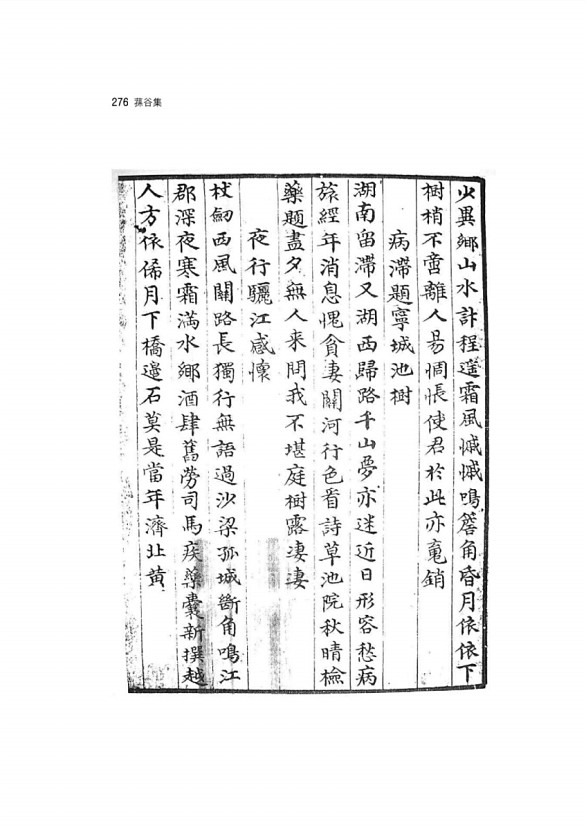 276 蓀谷集
少異鄉山水計程遥霜風慽慽鳴簷角昏月依依下
樹梢不啻離人易惆悵使君於此亦䰟銷
病滯題寧城池樹
湖南留滯又湖西歸路千山夢亦迷近日形容愁病
旅經年消息愧貧妻關河行色看詩草池院秋晴檢
藥題盡夕無人来問我不堪庭樹露凄凄
夜行驪江感懷
杖劒西風關路長獨行無語過沙梁孤城斷角鳴江
郡深夜寒霜滿水鄉酒肆舊勞司馬疾藥囊新撰越
人方依俙月下橋邉石莫是當年濟北黄